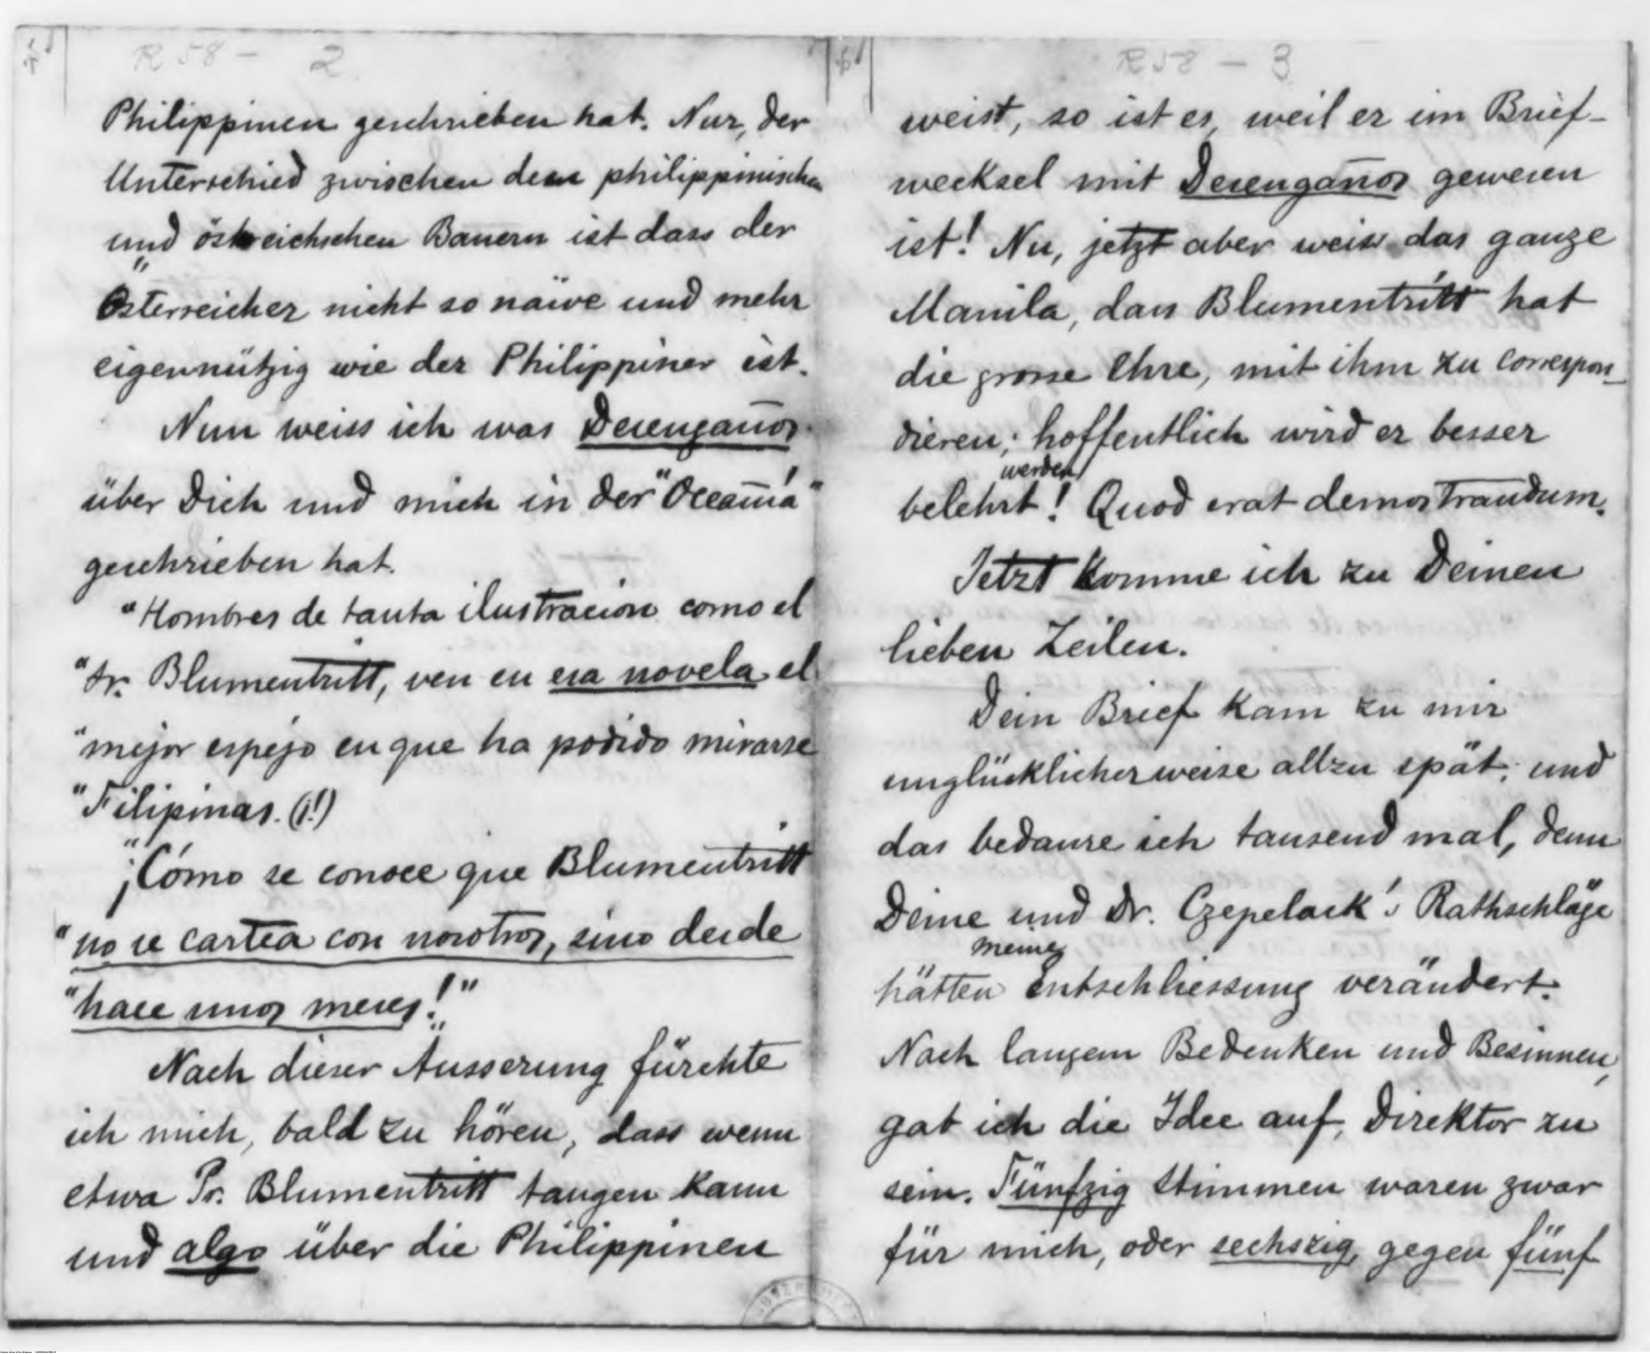 R 58 - 2
Philippinen geschrieben hat. Nur, der
Unterschied zwischen dem philippinischen
und östreichschen Bauern ist dass der
Österreicher nicht so naïve und mehr
eigennützig wie der Philippiner ist.
Nun weiss ich was Desengaños
über Dich und mich in der "Oceanía"
geschrieben hat.
"Hombres de tanta ilustracion como el
"Sr. Blumentritt, ven en esa novela el
"mejor espejo en que ha podido mirarse
"Filipinas. (¡!)
"¡Cómo se conoce que Blumentritt
"no se cartea con nosotros, sino desde
"hace unos meses!"
Nach dieser Äusserung fürchte
ich mich, bald zu hören, dass wenn
etwa Pr. Blumentritt taugen kann
und algo über die Philippinen
R 58 - 3
weist, so ist es, weil er im Brief-
wecksel mit Desengaños gewesen
ist! Nu, jetzt aber weiss das ganze
Manila, dass Blumentritt hat
die grosse Ehre, mit ihm zu correspon-
dieren; hoffentlich wird er besser
werden
belehrt! Quod erat demostrandum.
Jetzt komme ich zu Deinen
lieben Zeilen.
Dein Brief kam zu mir
unglücklicherweise allzu spät; und
das bedaure ich tausend mal, denn
Deine und Dr. Czepelack's Rathschläge
meine
hätten Entschliessung verändert.
Nach langem Bedenken und Besinnen,
gab ich die Idee auf, Direktor zu
sein. Fünfzig Stimmen waren zwar
für mich, oder sechszig, gegen fünf